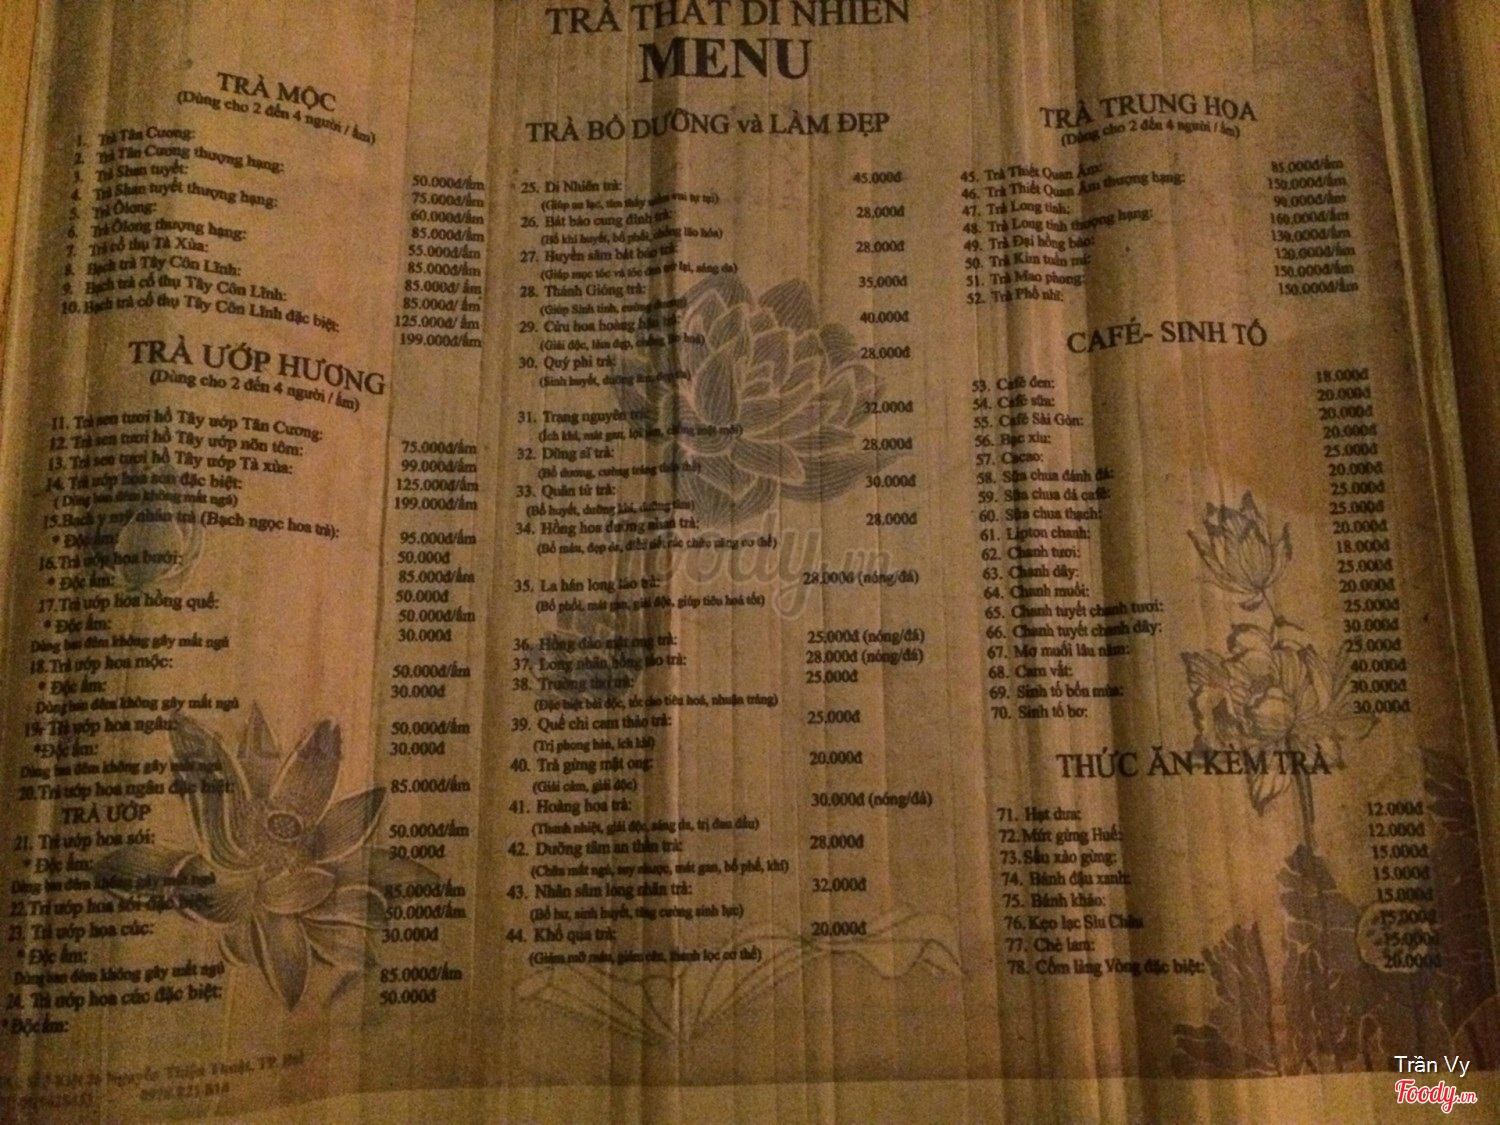 TRÀ THẤT DI NHIÊN
MENU
TRÀ MỘC
(Dùng cho 2 đến 4 người / ấm)
1. Trà Tân Cương: 50.000đ/ấm
2. Trà Tân Cương thượng hạng: 75.000đ/ấm
3. Trà Shan tuyết: 60.000đ/ấm
4. Trà Shan tuyết thượng hạng: 85.000đ/ấm
5. Trà Ôlong: 55.000đ/ấm
6. Trà Ôlong thượng hạng: 85.000đ/ấm
7. Trà cổ thụ Tà Xùa: 85.000đ/ ấm
8. Bạch trà Tây Côn Lĩnh: 85.000đ/ ấm
9. Bạch trà cổ thụ Tây Côn Lĩnh: 125.000đ/ ấm
10. Bạch trà cổ thụ Tây Côn Lĩnh đặc biệt: 199.000đ/ấm
TRÀ ƯỚP HƯƠNG
(Dùng cho 2 đến 4 người / ấm)
11. Trà sen tươi hồ Tây ướp Tân Cương: 75.000đ/ấm
12. Trà sen tươi hồ Tây ướp nõn tôm: 99.000đ/ấm
13. Trà sen tươi hồ Tây ướp Tà xùa: 125.000đ/ấm
14. Trà ướp hoa sen đặc biệt: 199.000đ/ấm
( Dùng ban đêm không mất ngủ)
15.Bạch y mỹ nhân trà (Bạch ngọc hoa trà): 95.000đ/ấm
* Độc ấm: 50.000đ
16.Trà ướp hoa bưởi: 85.000đ/ấm
* Độc ấm: 50.000đ
17.Trà ướp hoa hồng quế: 50.000đ/ấm
* Độc ấm: 30.000đ
Dùng ban đêm không gây mất ngủ
18.Trà ướp hoa mộc: 50.000đ/ấm
* Độc ấm: 30.000đ
Dùng ban đêm không gây mất ngủ
19. Trà ướp hoa ngâu: 50.000đ/ấm
*Độc ấm: 30.000đ
Dùng ban đêm không gây mất ngủ
20.Trà ướp hoa ngâu đặc biệt: 85.000đ/ấm
TRÀ ƯỚP
21. Trà ướp hoa sói: 50.000đ/ấm
* Độc ấm: 30.000đ
Dùng ban đêm không gây mất ngủ
22.Trà ướp hoa sói đặc biệt: 85.000đ/ấm
50.000đ/ấm
23. Trà ướp hoa cúc: 30.000đ
* Độc ấm:
Dùng ban đêm không gây mất ngủ
24. Trà ướp hoa cúc đặc biệt: 85.000đ/ấm
* Độc ấm: 50.000đ
Nguyễn Thiện Thuật, TP
0978 821 818
TRÀ BỔ DƯỠNG và LÀM ĐẸP
25. Di Nhiên trà: 45.000đ
(Giúp an lạc, tâm thấy tự tại)
26. Bát bảo cung đình trà: 28.000đ
(Bổ khí huyết, bổ phổi, chống lão hóa)
27. Huyền sâm bát bảo trà: 28.000đ
(Giúp mọc tóc và tóc đen trở lại, sáng da)
28. Thánh Gióng trà: 35.000đ
(Giúp Sinh tinh, cường dương)
29. Cửu hoa hoàng hậu trà: 40.000đ
(Giải độc, làm đẹp, chống lão hoá)
30. Quý phi trà: 28.000đ
(Sinh huyết, dưỡng âm,
31. Trạng nguyên trà: 32.000đ
(Ích khí, mát gan, lợi tâm, chống mệt mỏi)
32. Dũng sĩ trà: 28.000đ
(Bổ dương, cường tráng thân thể)
33. Quân tử trà: 30.000đ
(Bổ huyết, dưỡng khí, dưỡng tâm)
34. Hồng hoa dưỡng nhan trà: 28.000đ
(Bổ máu, đẹp da, điều tiết các chức năng cơ thể)
35. La hán long lão trà: 28.000đ (nóng/đá)
(Bổ phổi, mát gan, giải độc, giúp tiêu hoá tốt)
36. Hồng đào mật ong trà: 25.000đ (nóng/đá)
37. Long nhãn hồng táo trà: 28.000đ (nóng/đá)
38. Trường thọ trà: 25.000đ
(Đặc biệt bài độc, tốt cho tiêu hoá, nhuận tràng)
39. Quế chi cam thảo trà: 25.000đ
(Trị phong hàn, ích khí)
40. Trà gừng mật ong: 20.000đ
(Giải cảm, giải độc)
41. Hoàng hoa trà: 30.000đ (nóng/đá)
(Thanh nhiệt, giải độc, sáng da, trị đau đầu)
42. Dưỡng tâm an thần trà: 28.000đ
(Chữa mất ngủ, suy nhược, mát gan, bổ phế, khí)
43. Nhân sâm long nhãn trà: 32.000đ
(Bổ hư, sinh huyết, tăng cường sinh lực)
44. Khổ qua trà: 20.000đ
(Giảm mỡ máu, giảm cân, thanh lọc cơ thể)
TRÀ TRUNG HOA
(Dùng cho 2 đến 4 người / ấm)
45. Trà Thiết Quan Âm: 85.000đ/ấm
46. Trà Thiết Quan Âm thượng hạng: 150.000đ/ấm
47. Trà Long tỉnh: 90.000đ/ấm
48. Trà Long tỉnh thượng hạng: 160.000đ/ấm
49. Trà Đại hồng bào: 130.000đ/ấm
50. Trà Kim tuấn mi: 120.000đ/ấm
51. Trà Mao phong: 150.000đ/ấm
52. Trà Phổ nhĩ: 150.000đ/ấm
CAFÉ- SINH TỐ
53. Café đen: 18.000đ
54. Café sữa: 20.000đ
55. Café Sài Gòn: 20.000đ
56. Bạc xỉu: 20.000đ
57. Cacao: 25.000đ
58. Sữa chua đánh đá: 20.000đ
59. Sữa chua đá café: 25.000đ
60. Sữa chua thạch: 25.000đ
61. Lipton chanh: 20.000đ
62. Chanh tươi: 18.000đ
63. Chanh dây: 25.000đ
64. Chanh muối: 20.000đ
65. Chanh tuyết chanh tươi: 25.000đ
66. Chanh tuyết chanh dây: 30.000đ
67. Mơ muối lâu năm: 25.000đ
68. Cam vắt: 40.000đ
69. Sinh tố bốn mùa: 30.000đ
70. Sinh tố bơ: 30.000đ
THỨC ĂN KÈM TRÀ
71. Hạt dưa: 12.000đ
72. Mứt gừng Huế: 12.000đ
73. Sấu xào gừng: 15.000đ
74. Bánh đậu xanh: 15.000đ
75. Bánh khảo: 15.000đ
76. Kẹo lạc Sìu Châu 15.000đ
77. Chè lam: 15.000đ
78. Cốm làng Vòng đặc biệt: 20.000đ
foody.vn
Trần Vy
Foody.vn